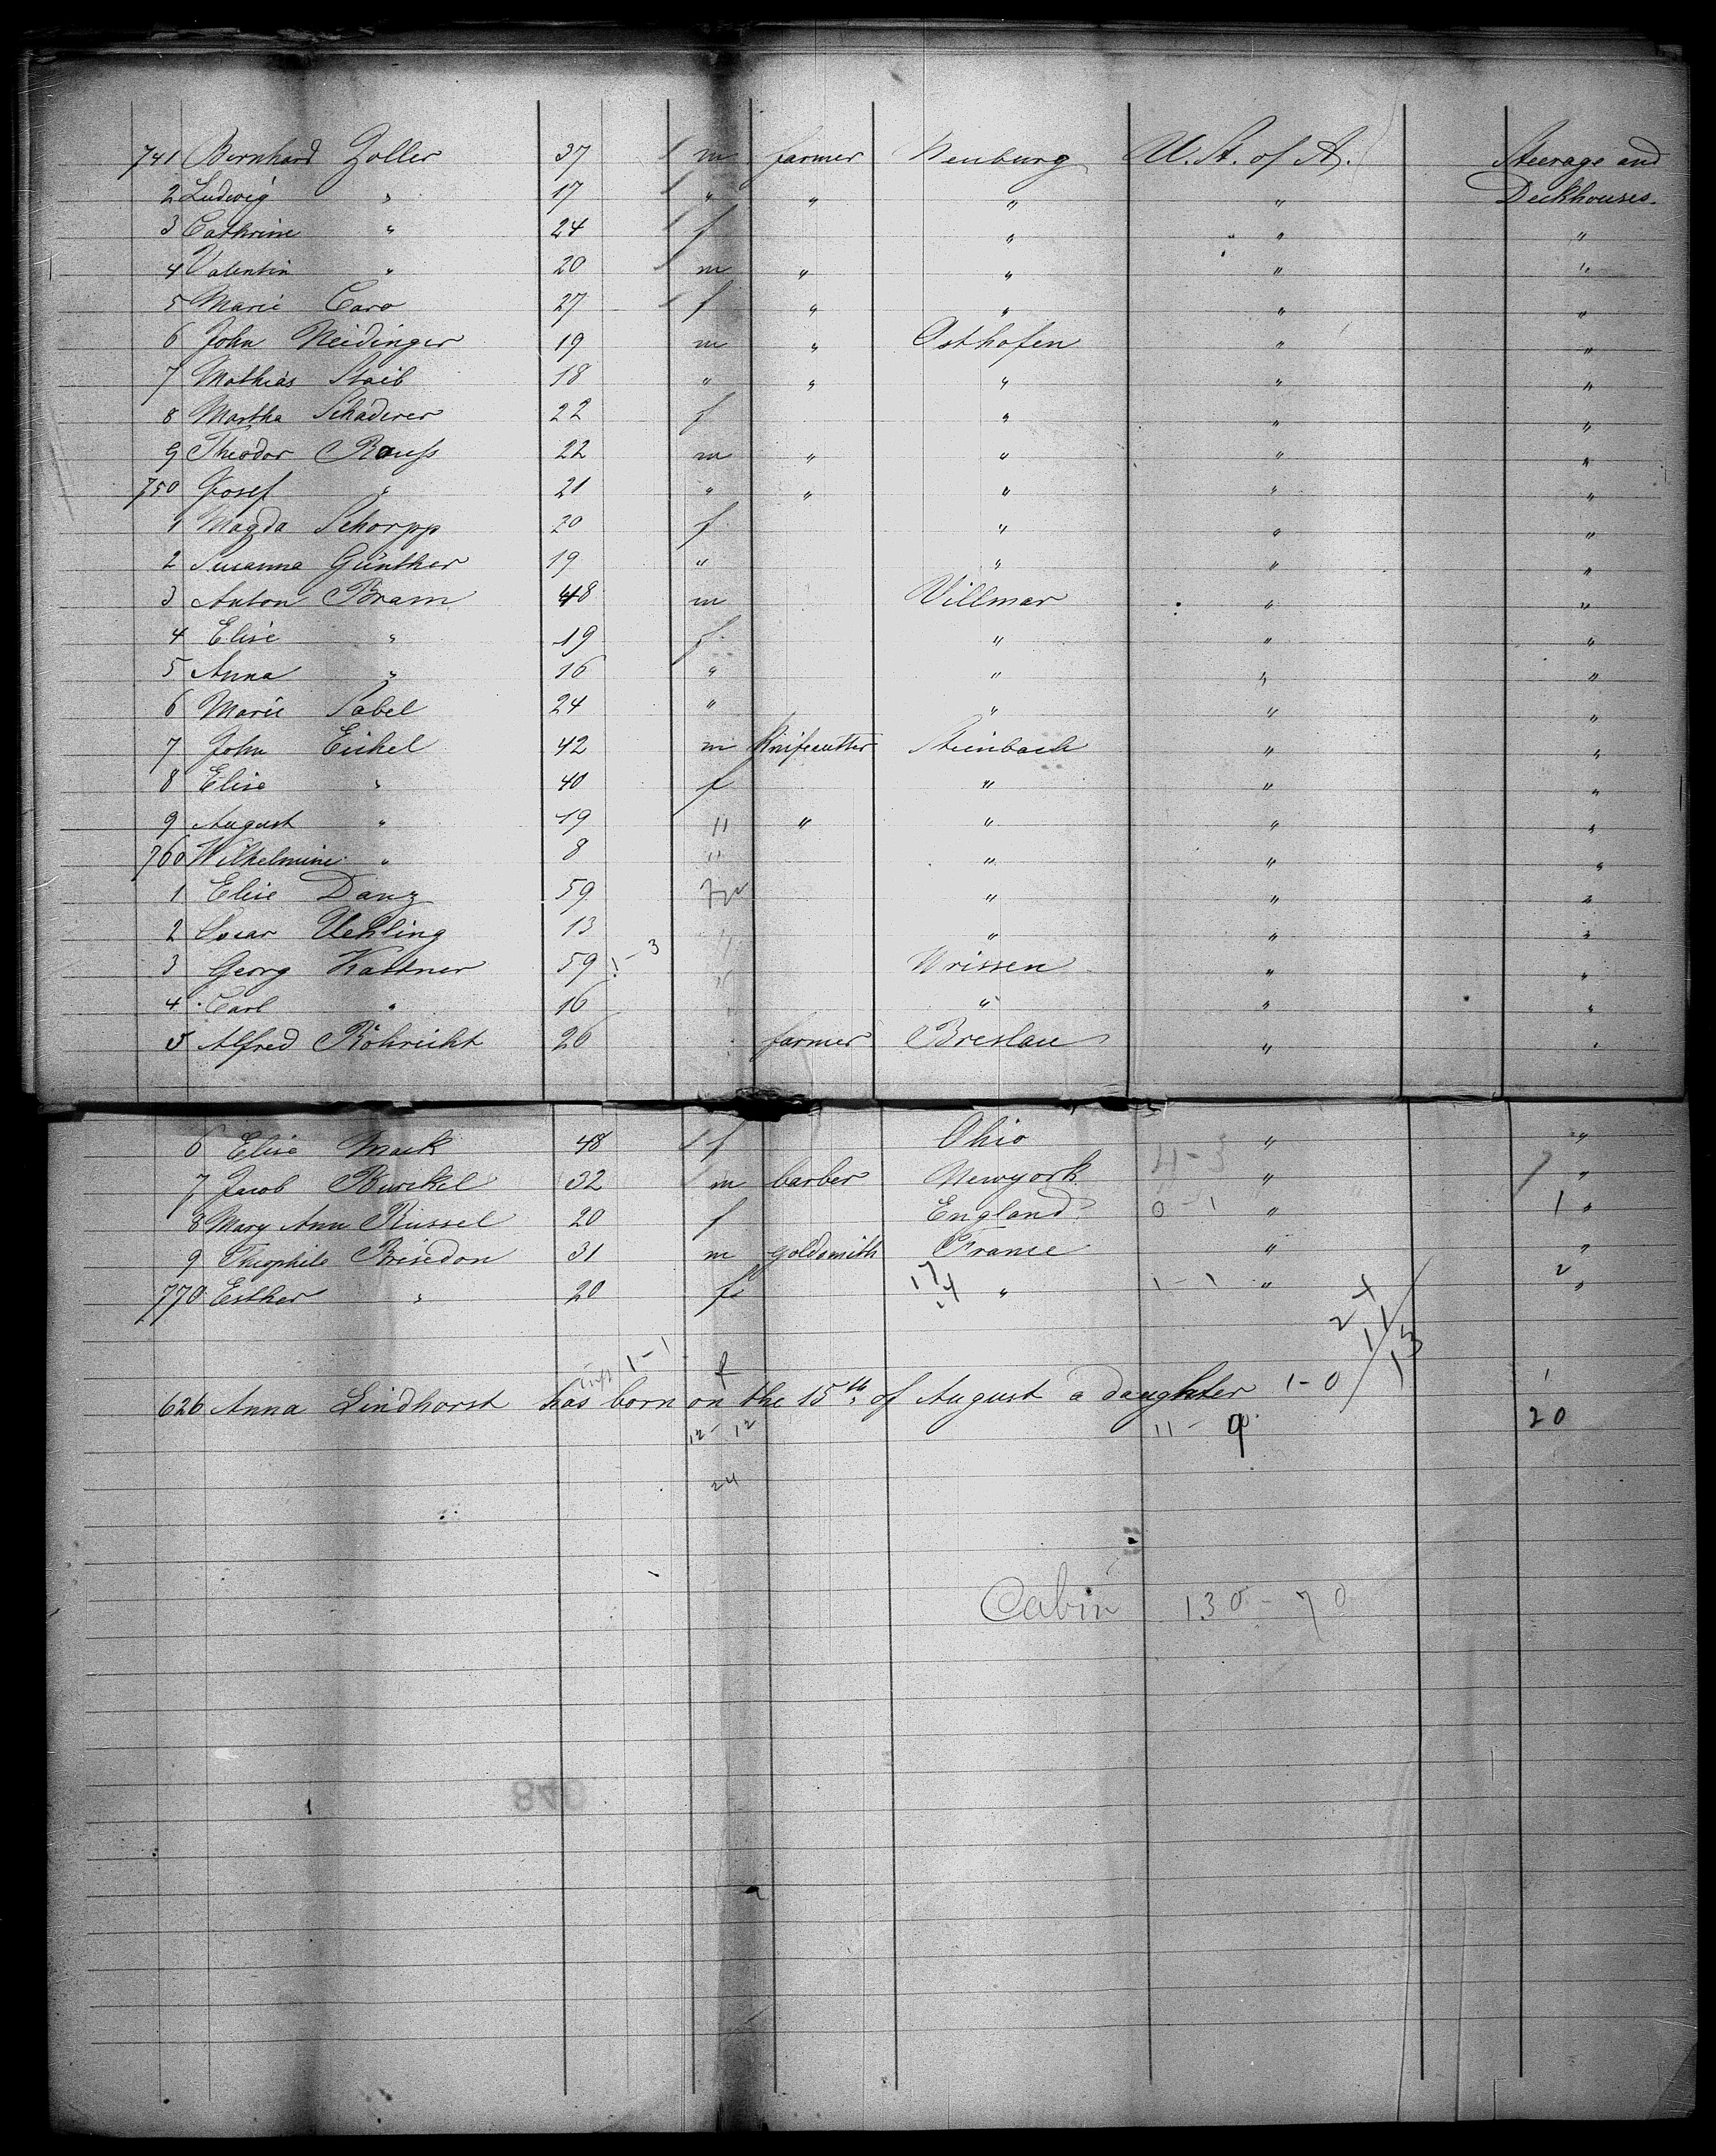 741 Bernhard Zoller 37 m farmer Neuburg U. St. of A. Steerage and
2 Ludwig " 17 " " " " Deckhouses.
3 Cathrine " 24 f " " "
4 Valentin " 20 m " " " "
5 Marie Caro 27 f " " " "
6 John Neidinger 19 m " Osthofen " "
7 Mathias Staib 18 " " " " "
8 Martha Schaderer 22 f " " "
9 Theodor Rauß 22 m " " " "
750 Josef " 21 " " " " "
1 Magda Schorpp 20 f " " "
2 Susanna Günther 19 " " " "
3 Anton Bram 48 m Villmar " "
4 Elise " 19 f " " "
5 Anna " 16 " " " "
6 Marie Sabel 24 " " " "
7 John Eichel 42 m Knifecutter Steinbach " "
8 Elise " 40 f " " "
9 August " 19 " " " " "
760 Wilhelmine " 8 " " " "
1 Elise Danz 59 " " "
2 Oscar Uehling 13 " " " "
3 Georg Kattner 59 1-3 " Wrissen " "
4 Carl " 16 " " "
5 Alfred Röhricht 26 farmer Breslau " "
6 Elise Mack 48 f Ohio " "
7 Jacob Burckel 32 m barber Newyork 4-3 " "
8 Mary Ann Russel 20 f England 0-1 " 1 "
9 Theophile Brisedon 31 m goldsmith France " "
770 Esther " 20 f 17 14 " 1-1 " 2 "
24
11
13
1-1 f
626 Anna Lindhorst has born on the 15th of August a daughter 1-0 1
12-12 11-9 20
24
Cabin 130-70
840